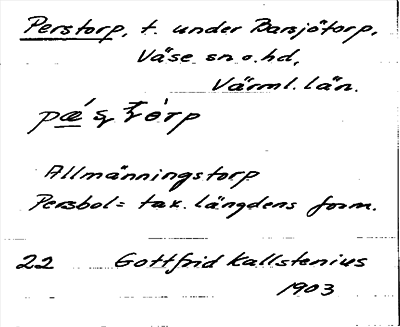 Perstorp, t. under Barsjötorp,
Väse sn o. hd,
Värml. län.
Allmänningstorp
Persbol = tax. längdens form.
22 Gottfrid Kallstenius
1903